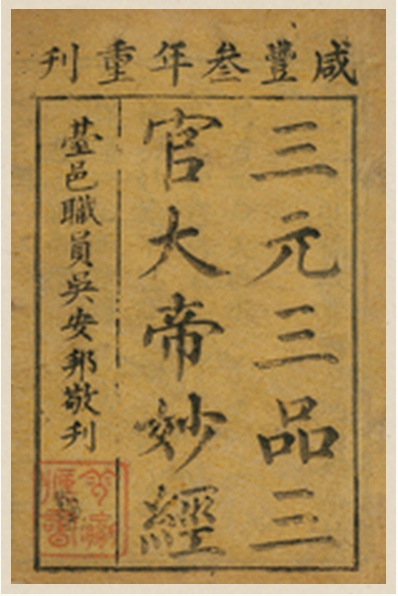 咸豐叁年重刊
三元三品三
官大帝妙經
臺邑職員吳安邦敬刊